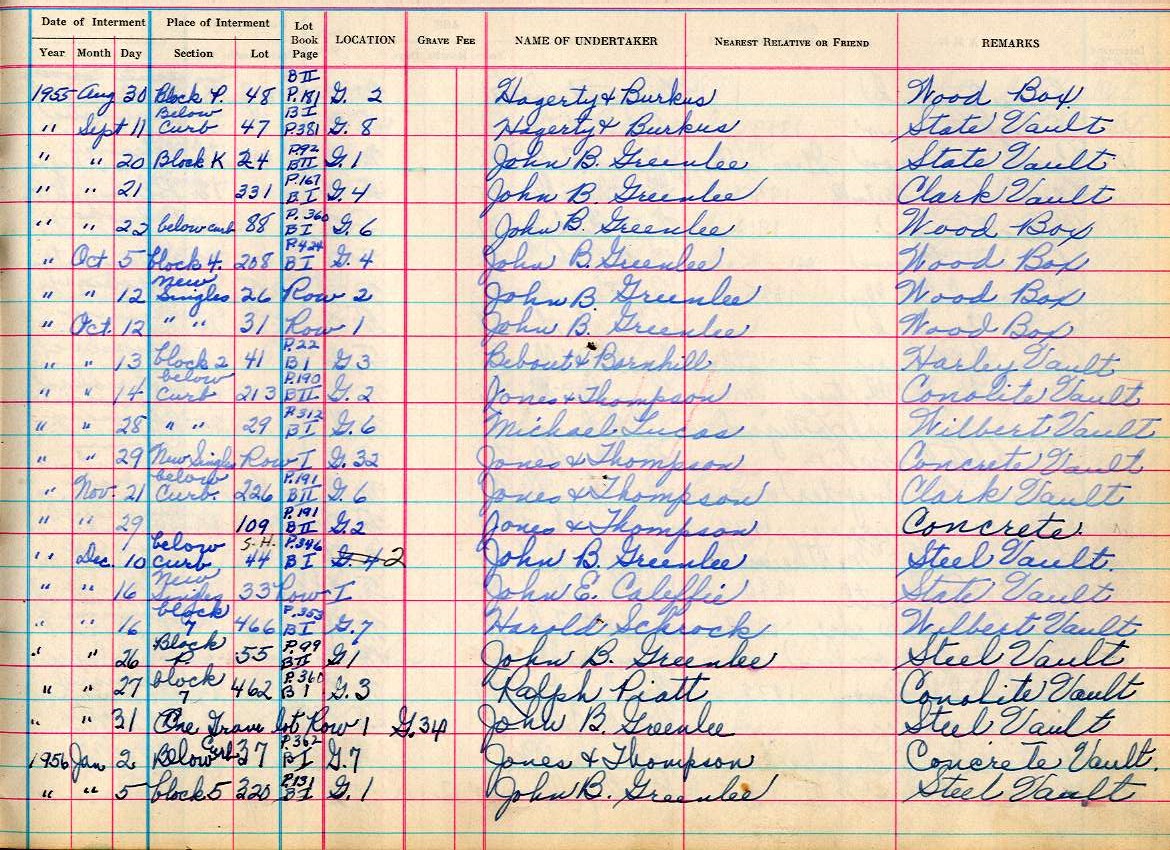 Date of Interment Place of Interment Lot Book Page LOCATION GRAVE FEE NAME OF UNDERTAKER NEAREST RELATIVE OR FRIEND REMARKS
Year Month Day Section Lot
1955 Aug 30 Block P. 48 B II P. 181 G. 2 Hagerty & Burkus Wood Box
" Sept 11 Below Curb 47 B I P. 381 G. 8 Hagerty & Burkus State Vault
" " 20 Block K 24 P. 92 B II G. 1 John B. Greenlee State Vault
" " 21 331 P. 167 B I G. 4 John B. Greenlee Clark Vault
" " 22 below curb 88 P. 360 B I G. 6 John B. Greenlee Wood Box
" Oct 5 block 4. 208 P. 424 B I G. 4 John B. Greenlee Wood Box
" " 12 New Singles 26 Row 2 John B. Greenlee Wood Box
" Oct. 12 " " 31 Row 1 John B. Greenlee Wood Box
" " 13 block 2 41 P. 22 B I G. 3 Bebout & Barnhill Harley Vault
" " 14 below Curb 213 P. 190 B II G. 2 Jones & Thompson Conolite Vault
" " 28 " " 29 P. 312 B I G. 6 Michael Lucas Wilbert Vault
" " 29 New Singles Row I G. 32 Jones & Thompson Concrete Vault
" Nov. 21 below Curb. 226 P. 191 B II G. 6 Jones & Thompson Clark Vault
" " 29 109 P. 191 B II G. 2 Jones & Thompson Concrete.
" Dec. 10 below curb S.H. 44 P. 346 B I G. 4 2 John B. Greenlee Steel Vault.
" " 16 New Singles 33 Row I John E. Caleffie State Vault
" " 16 block 7 466 P. 353 B I G. 7 Harold Schrock Wilbert Vault
" " 26 Block P. 55 P. 99 B II G 1 John B. Greenlee Steel Vault
" " 27 block 7 462 P. 360 B I G. 3 Ralph Piatt Conolite Vault
" " 31 One Grave lot Row 1 G. 34 John B. Greenlee Steel Vault
1956 Jan 2 Below Curb 37 P. 362 B I G. 7 Jones & Thompson Concrete Vault.
" " 5 block 5 220 P. 131 B I G. 1 John B. Greenlee Steel Vault